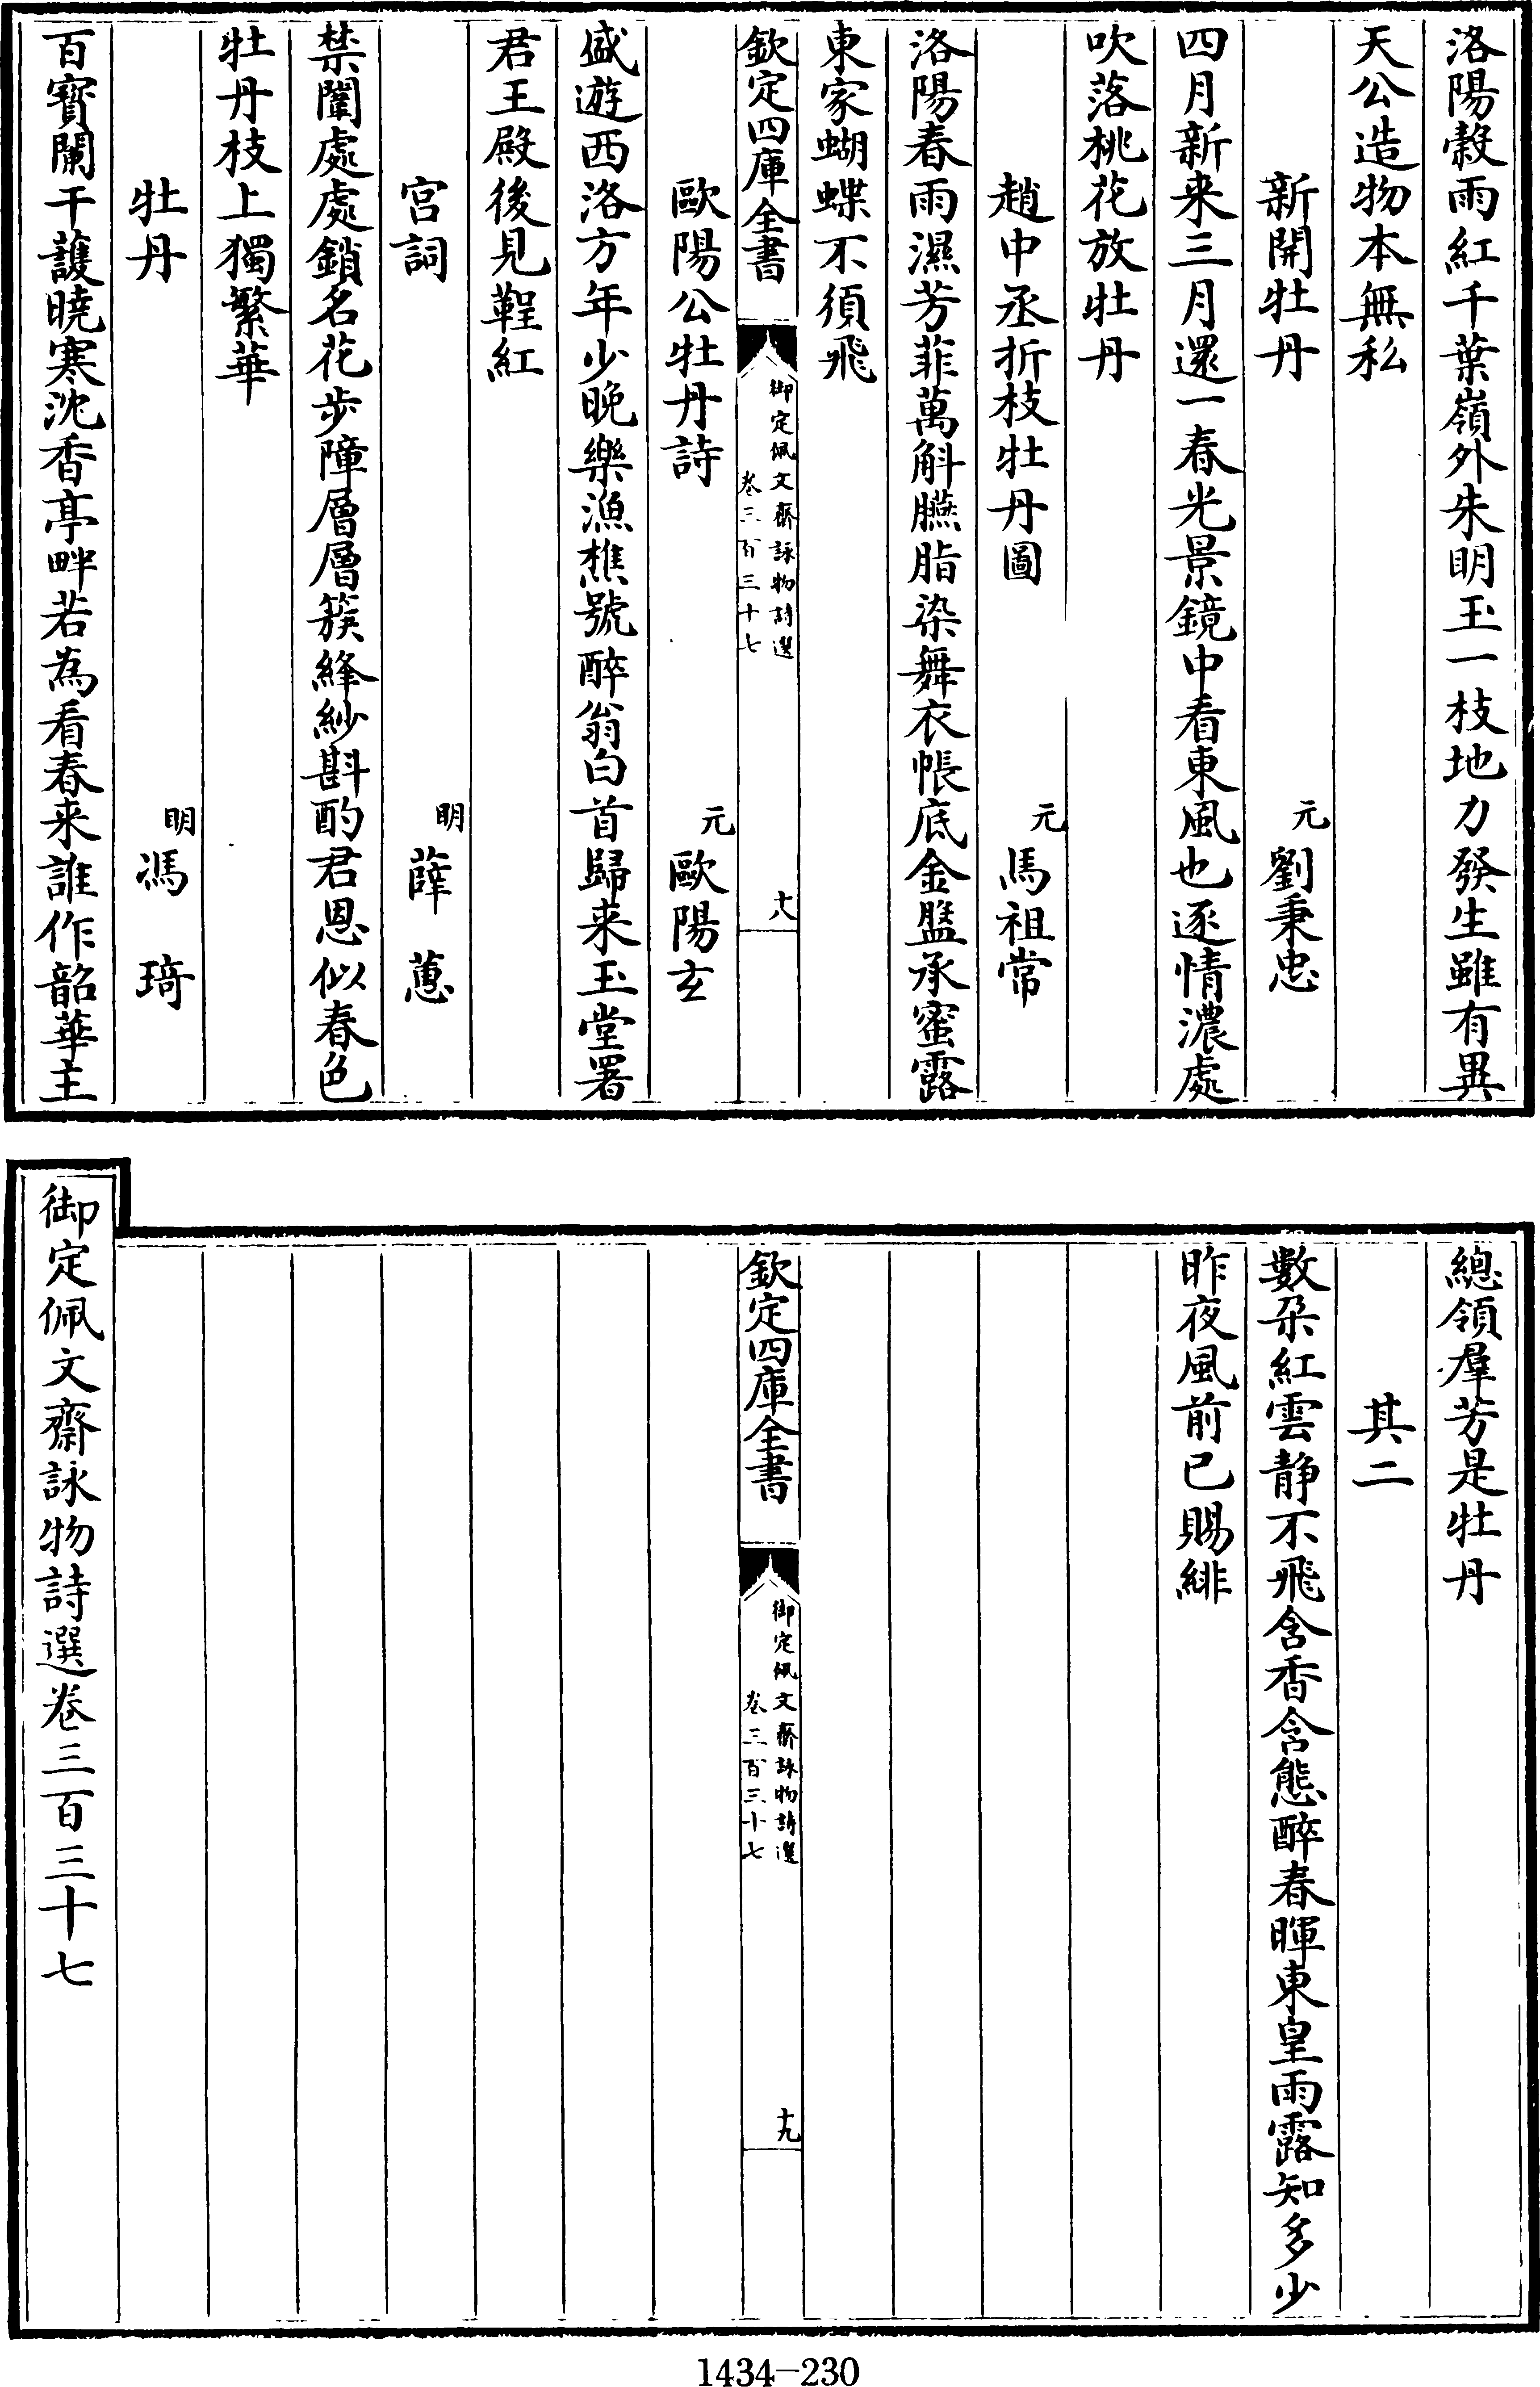 洛陽縠雨紅千葉嶺外朱明玉一枝地力發生雖有異
天公造物本無私
新開牡丹　元　劉秉忠
四月新来三月還一春光景鏡中看東風也逐情濃處
吹落桃花放牡丹
趙中丞折枝牡丹圖　元　馬祖常
洛陽春雨濕芳菲萬斛臙脂染舞衣帳底金盤承蜜露
東家蝴蝶不須飛
欽定四庫全書　御定佩文齋詠物詩選　卷三百三十七　十八
歐陽公牡丹詩　元　歐陽玄
盛遊西洛方年少晚樂漁樵號醉翁白首歸来玉堂署
君王殿後見鞓紅
宫詞　明　薛蕙
禁闈處處鎖名花步障層層簇絳紗斟酌君恩似春色
牡丹枝上獨繁華
牡丹　明　馮琦
百寳闌干護曉寒沈香亭畔若為看春来誰作韶華主
總領羣芳是牡丹
其二
數朶紅雲静不飛含香含態醉春暉東皇雨露知多少
昨夜風前已賜緋
欽定四庫全書　御定佩文齋詠物詩選　卷三百三十七　十九
御定佩文齋詠物詩選卷三百三十七
1434-230